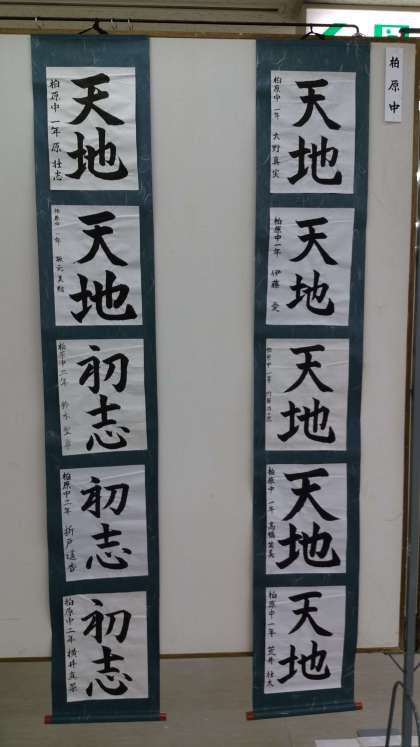 柏原中
天地
柏原中 一年 大野真実
天地
柏原中一年 伊藤 愛
天地
柏原中一年
天地
柏原中 一年 高橋
天地
柏原中一年 荒井壮太
天地
柏原中 一年 原 壮志
天地
柏原中一年
初志
柏原中二年 鈴木
初志
柏原中二年 折戸
初志
柏原中二年 横井